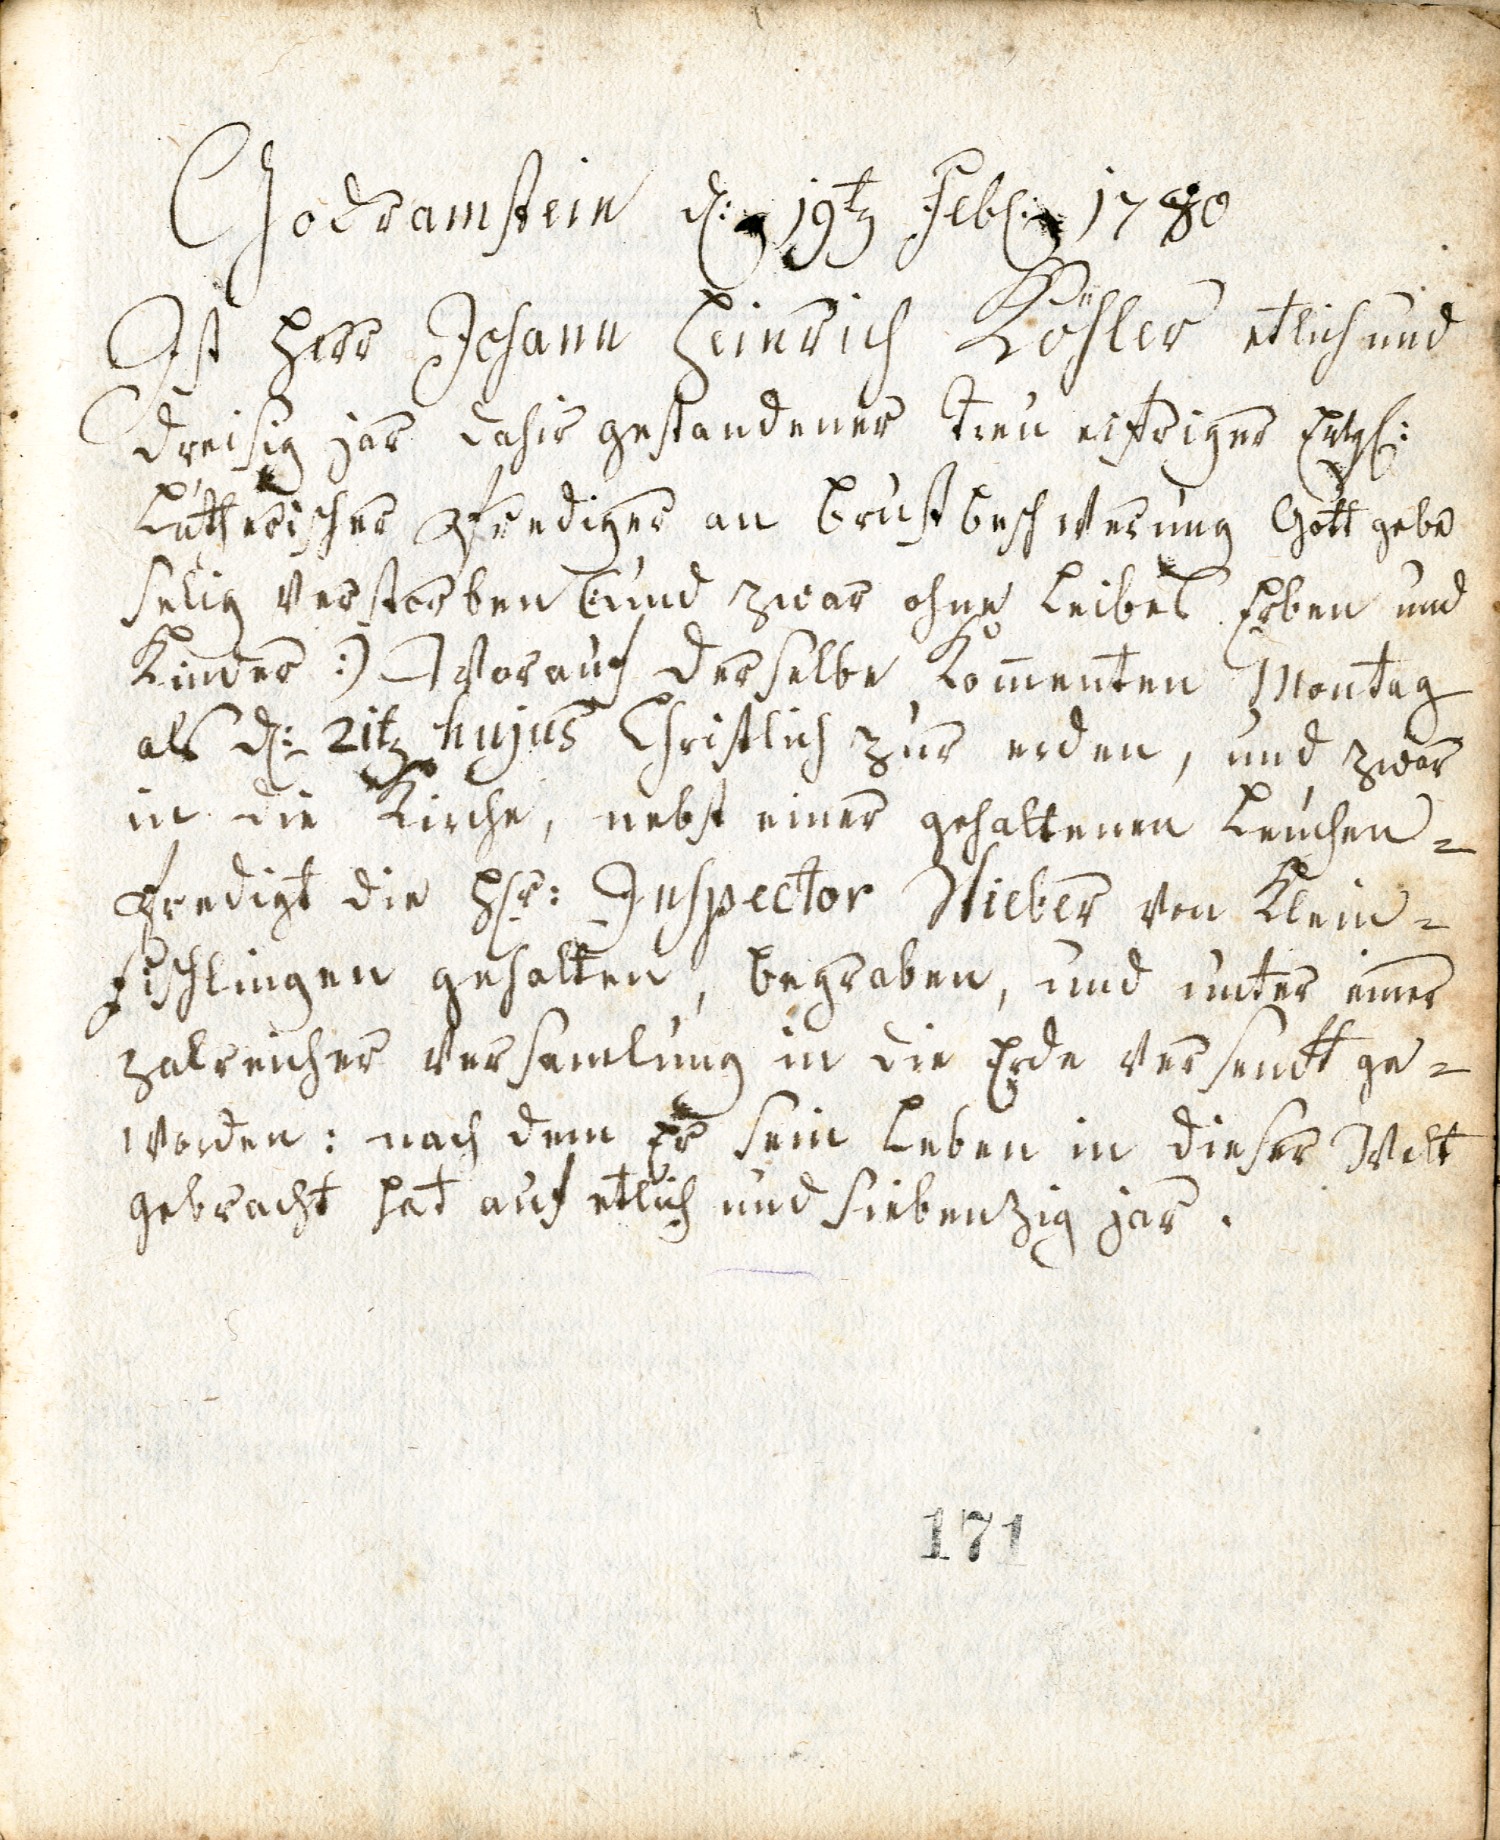 Godramstein d: 19tz Feb: 1780
Ist Herr Johann Heinrich Köhler etlich und
dreisig jar dahir gestandener treu eifriger Evgl:
Lutherischer Prediger an Brustbeschwerung Gott gebe
selig verstorben (: und zwar ohne Leibes Erben und
Kinder :) Worauf derselbe Kommenten Montag
als d: 21tz hujus Christlich zur erden, und zwar
in die Kirche, nebst einer gehaltenen Leuchen=
Predigt die Hr: Inspector Wieber von Klein=
fischlingen gehalten, begraben, und unter einer
zalreicher Versamlung in die Erde versenckt ge=
worden: nach dem Er sein Leben in dieser Welt
gebracht hat auf etlich und siebenzig jar.
171